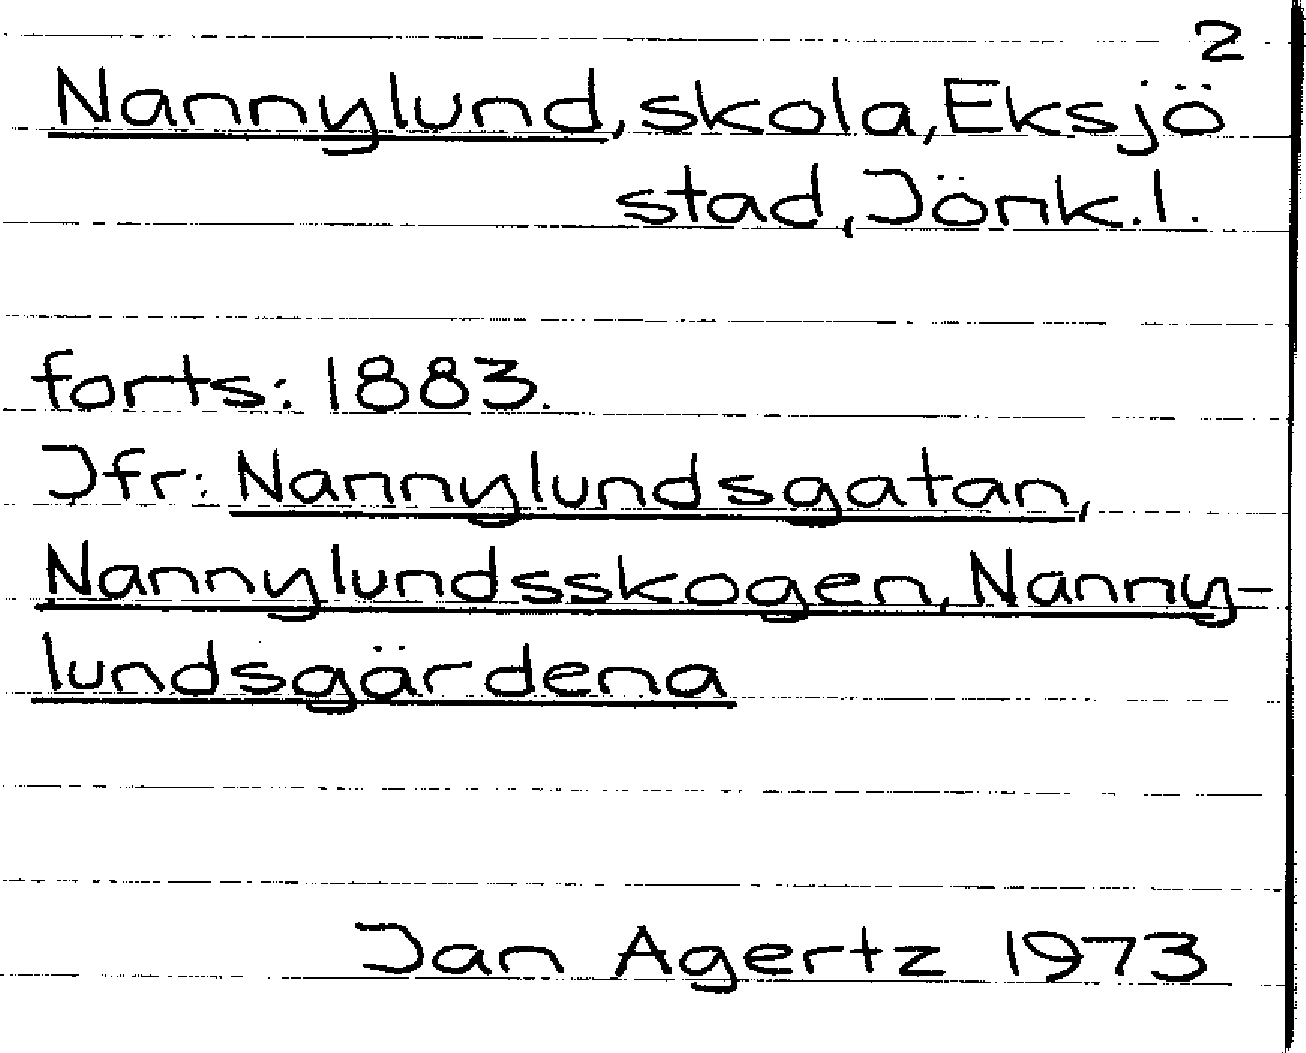 2
Nannylund, skola, Eksjö
stad, Jönk.l.
forts: 1883.
Jfr: Nannylundsgatan,
Nannylundsskogen, Nanny-
lundsgärdena
Jan Agertz 1973